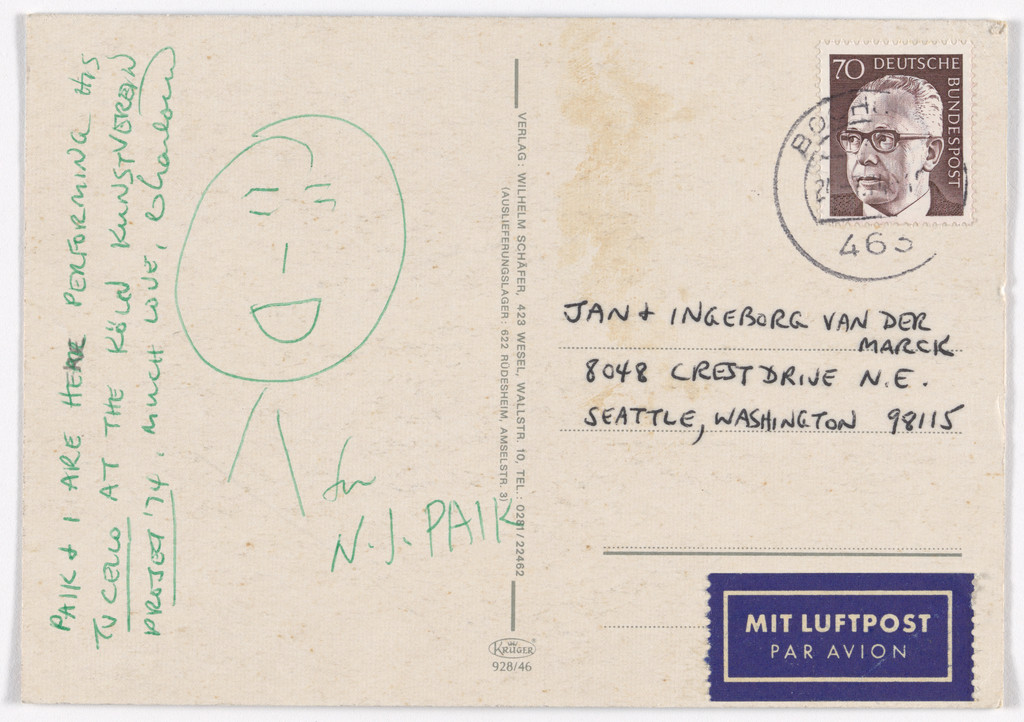 PAIK & I ARE HERE PERFORMING HIS
TV CELLO AT THE KÖLN KUNSTVEREIN
PROJECT '74. MUCH LOVE, Charlotte
N. J. PAIK
VERLAG: WILHELM SCHÄFER, 423 WESEL, WALLSTR. 10, TEL.: 0281/22462
(AUSLIEFERUNGSLAGER: 622 RÜDESHEIM, AMSELSTR. 3)
KRÜGER
928/46
70 DEUTSCHE
BUNDESPOST
JAN & INGEBORG VAN DER
MARCK
8048 CREST DRIVE N.E.
SEATTLE, WASHINGTON 98115
MIT LUFTPOST
PAR AVION